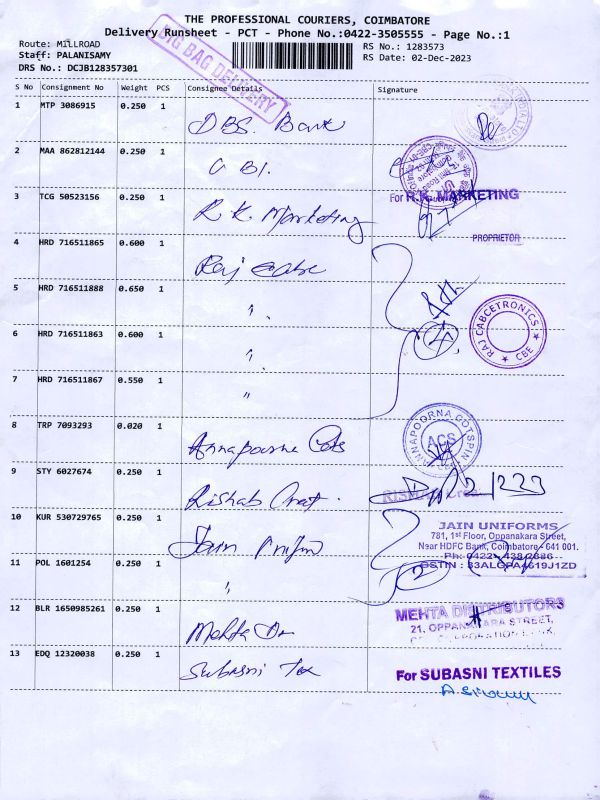 THE PROFESSIONAL COURIERS, COIMBATORE
Delivery Runsheet - PCT - Phone No.:0422-3505555 - Page No.:1
Route: MILLROAD
Staff: PALANISAMY
DRS No.: DCJB128357301
RS No.: 1283573
RS Date: 02-Dec-2023
BIG BAG DELIVERY
S No Consignment No Weight PCS Consignee Details Signature
1 MTP 3086915 0.250 1 DBS. Bank
2 MAA 862812144 0.250 1 CBI.
3 TCG 50523156 0.250 1 R. K. Marketing
For R.K. MARKETING
PROPRIETOR
4 HRD 716511865 0.600 1 Raj
5 HRD 716511888 0.650 1 "
6 HRD 716511863 0.600 1 "
4
RAJ CABCETRONICS ★ CBE ★
7 HRD 716511867 0.550 1 "
8 TRP 7093293 0.020 1 Annapoorna Cots
ANNAPOORNA COTSPIN
ACS
9 STY 6027674 0.250 1 Rishab Creat.
10 KUR 530729765 0.250 1 Jain Unifom
JAIN UNIFORMS
781, 1st Floor, Oppanakara Street,
Near HDFC Bank, Coimbatore - 641 001.
11 POL 1601254 0.250 1 "
2
12 BLR 1650985261 0.250 1 Mehta Dr
MEHTA DISTRIBUTORS
21, OPPANAKARA STREET,
13 EDQ 12320038 0.250 1 Subasni Tex
For SUBASNI TEXTILES